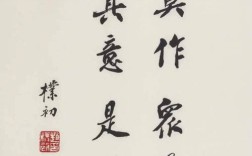 莫作眾
其意是
樸初